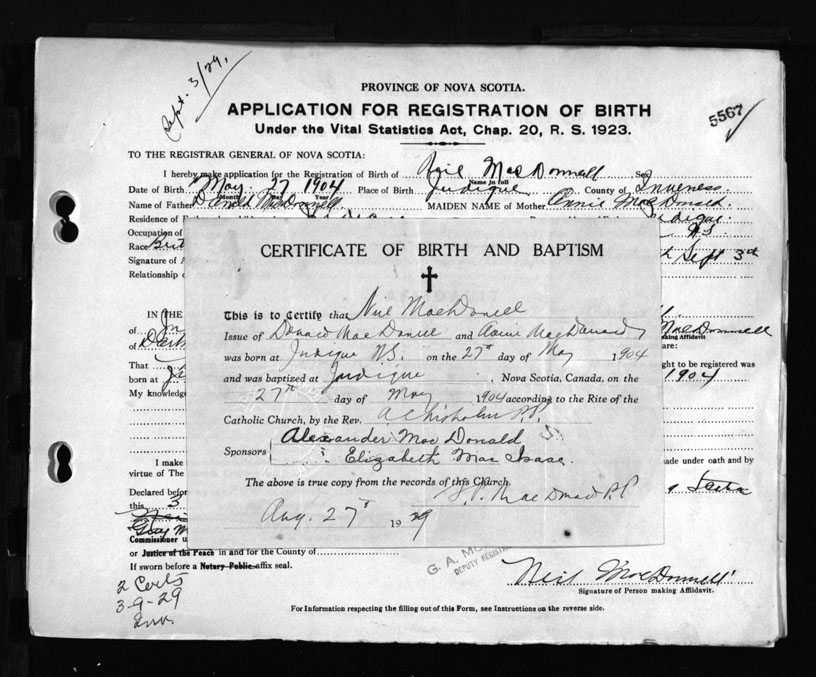 Sept. 3/29.
PROVINCE OF NOVA SCOTIA.
APPLICATION FOR REGISTRATION OF BIRTH
Under the Vital Statistics Act, Chap. 20, R. S. 1923.
5567
TO THE REGISTRAR GENERAL OF NOVA SCOTIA:
I hereby make application for the Registration of Birth of Neil MacDonnell Sex
Name in full
Date of Birth May 27 1904 Place of Birth Judique County of Inverness
Month Day Year
Name of Father Donald MacDonnell MAIDEN NAME of Mother Annie MacDonald
Residence of
Occupation of N.S.
Race
Signature of Sept 3rd
Relationship
CERTIFICATE OF BIRTH AND BAPTISM
This is to Certify that Neil MacDonell
Issue of Donald MacDonell and Annie MacDonald
was born at Judique N.S. on the 27th day of May 1904
and was baptized at Judique, Nova Scotia, Canada, on the
27th day of May 1904 according to the Rite of the
Catholic Church, by the Rev. A Chisholm P.P.
Sponsors Alexander MacDonald
Elizabeth Mac Isaac.
The above is true copy from the records of this Church.
P.P.
Aug. 27th 1929
IN THE
of MacDonnell
making Affidavit
of are:
That ght to be registered was
born at 1904
My knowledge
I make made under oath and by
virtue of The
Declared before
this 3
Commissioner
or Justice of the Peace in and for the County of
If sworn before a Notary Public affix seal.
G. A.
DEPUTY REGISTRAR
2 Certs
3-9-29
Inv.
Neil MacDonnell
Signature of Person making Affidavit.
For Information respecting the filling out of this Form, see Instructions on the reverse side.